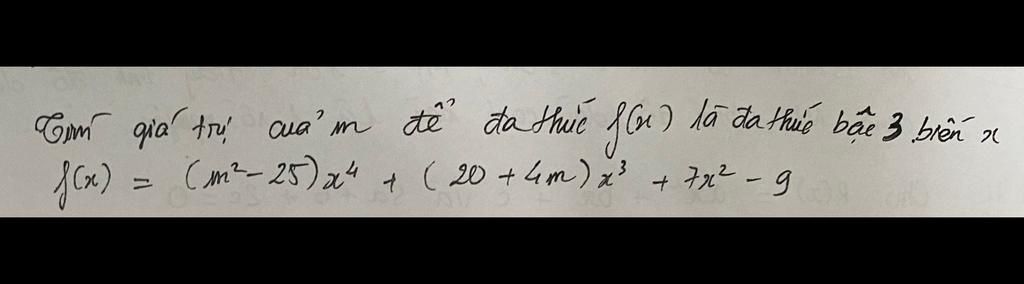 Tìm giá trị của m để đa thức f(x) là đa thức bậc 3 biến x
f(x) = (m² - 25)x⁴ + (20 + 4m)x³ + 7x² - 9